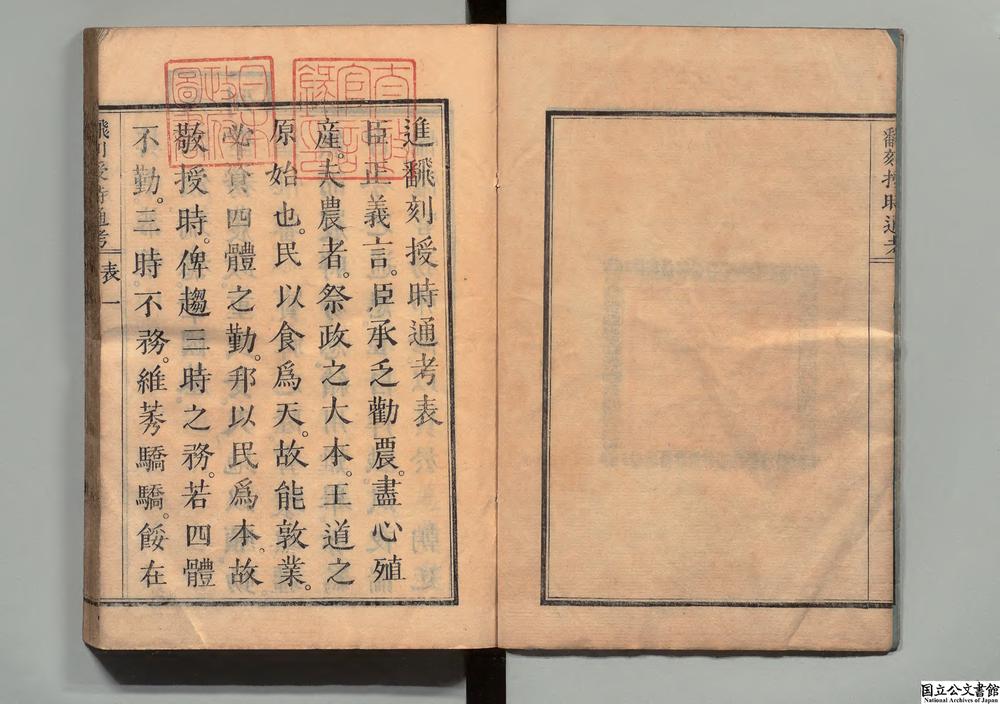 翻刻授時通考
進飜刻授時通考表
臣正義言。臣承乏勸農。盡心殖
產。夫農者。祭政之大本。王道之
原始也。民以食爲天。故能敦業。
必資四體之勤。邦以民爲本。故
敬授時。俾趨三時之務。若四體
不勤。三時不務。維莠驕驕。餒在
飜刻授時通考 表 一
太政官記錄印
日本政府圖書
国立公文書館
National Archives of Japan